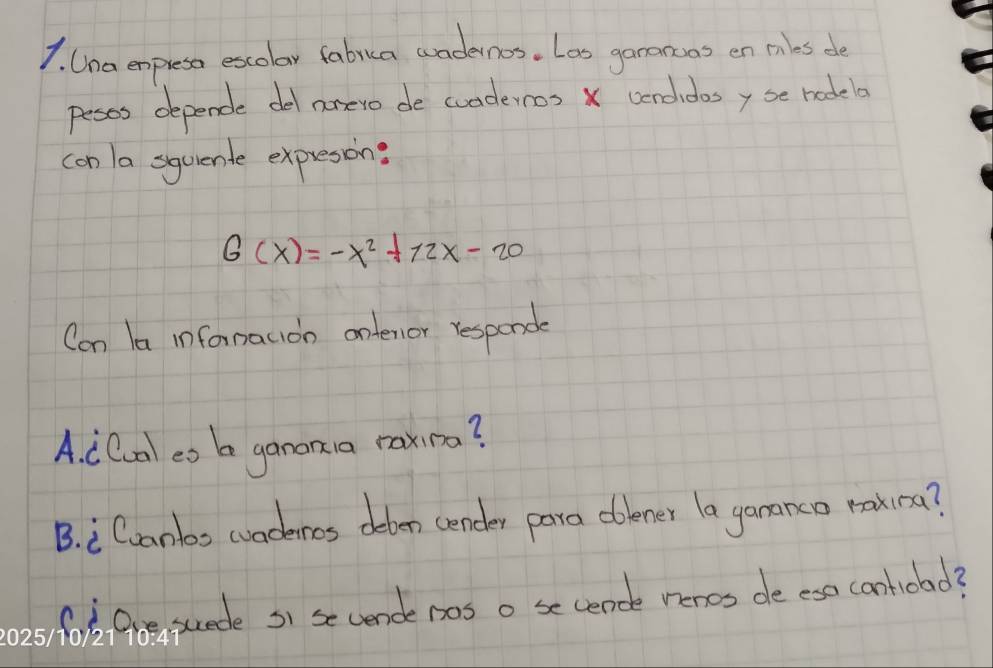 1. Una empresa escolar fabrica cuadernos. Las ganancias en miles de
pesos depende del numero de cuadernos x vendidos y se modela
con la siguiente expresión:
G(x) = -x² + 12x - 20
Con la información anterior responde
A. ¿Cual es la ganancia maxima?
B. ¿Cuantos cuadernos deben vender para obtener la ganancia maxima?
C. ¿Que sucede si se vende mas o se vende menos de esa cantidad?
2025/10/21 10:41